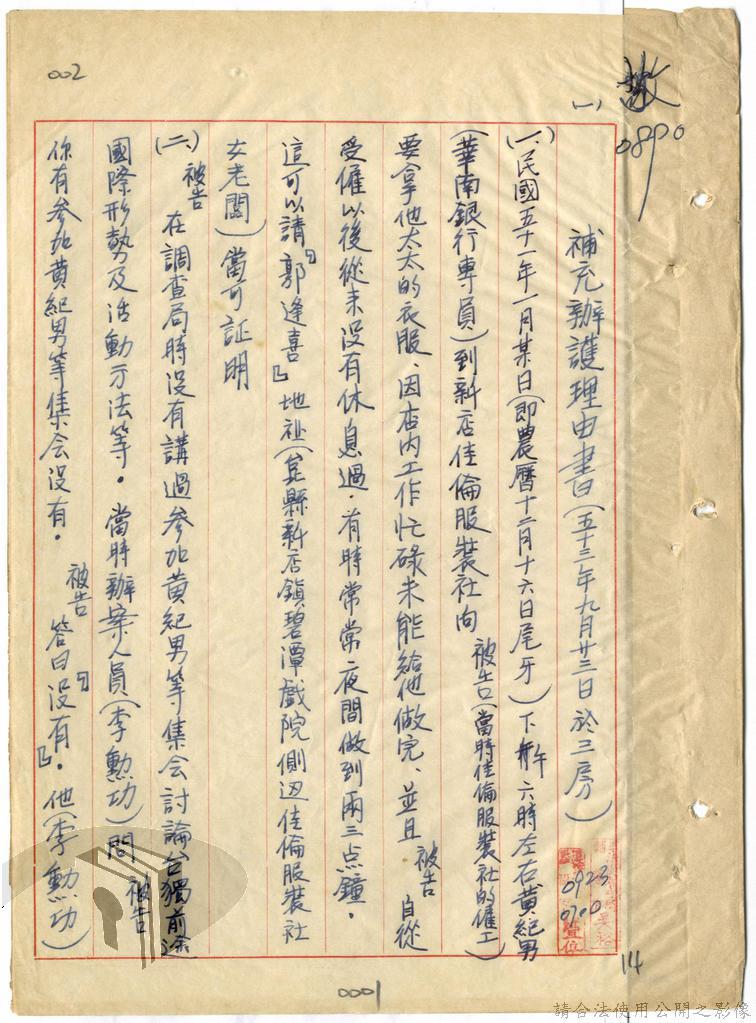 002
(一)
0890
補充辦護理由書(五十三年九月廿三日於三房)
(一)、民國五十一年一月某日(即農曆十二月十六日尾牙)下午六時左右黃紀男
(華南銀行專員)到新店佳倫服裝社向被告(當時佳倫服裝社的僱工)
要拿他太太的衣服、因店內工作忙碌未能給他做完、並且被告自從
受僱以後從未沒有休息過．有時常常夜間做到兩三点鐘．
這可以請「郭逢喜」地祉(台北縣新店鎮碧潭戲院側边佳倫服裝社
女老闆)當可証明
(二)、被告在調查局時沒有講過參加黃紀男等集会討論台獨前途
國際形勢及活動方法等。當時辦案人員(李勲功)問被告
你有參加黃紀男等集会沒有。被告答曰「沒有」。他(李勲功)
0923
0700
14
0001
請合法使用公開之影像